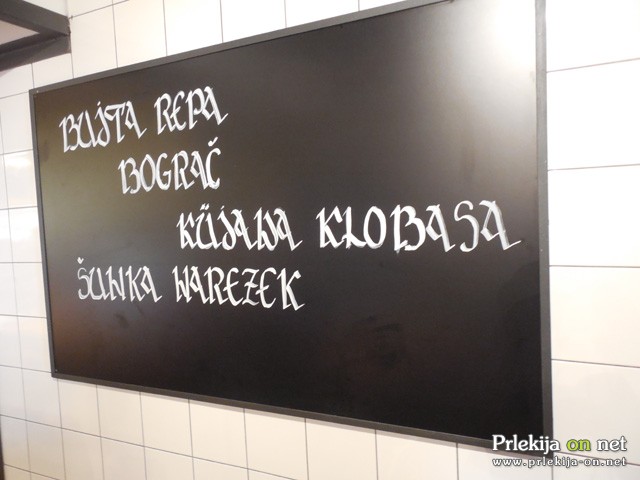 BUJTA REPA
BOGRAČ
KÜJANA KLOBASA
ŠUNKA NAREZEK
Prlekija on net
www.prlekija-on.net